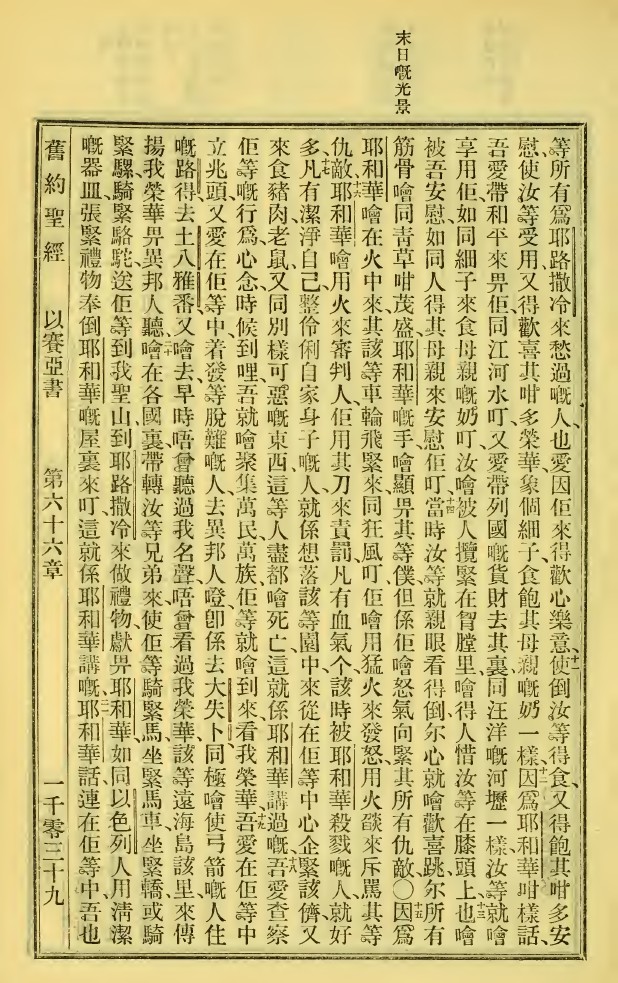 末日嘅光景
等所有爲耶路撒冷來愁過嘅人也愛因佢來得歡心樂意、十一使倒汝等得食、又得飽其咁多安
慰、使汝等受用、又得歡喜其咁多榮華、象個細子、食飽其母親嘅奶一樣、十二因爲耶和華咁樣話、
吾愛帶和平來畀佢、同江河水叮、又愛帶列國嘅貨財去其裏、同汪洋嘅河壢一樣、汝等就噲
享用佢、如同細子來食母親嘅奶叮、汝噲被人攬緊在胷膛里、噲得人惜汝等在膝頭上也、十三噲
被吾安慰、如同人得其母親來安慰佢叮、十四當時汝等就親眼看得倒、尔心就噲歡喜跳、尔所有
筋骨、噲同靑草咁茂盛、耶和華嘅手、噲顯畀其等僕、但係佢噲怒氣向緊其所有仇敵、〇十五因爲
耶和華噲在火中來、其該等車輪飛緊來、同狂風叮、佢噲用猛火來發怒、用火燄來斥駡其等
仇敵、十六耶和華噲用火來審判人、佢用其刀來責罰凡有血氣个、該時被耶和華殺戮嘅人、就好
多、十七凡有潔淨自己、整伶俐自家身子嘅人、就係想落該等園中來、從在佢等中心企緊該儕、又
來食豬肉老鼠、又同別樣可惡嘅東西、這等人盡都噲死亡、這就係耶和華講過嘅、十八吾愛查察
佢等嘅行爲心念、時候到哩、吾就噲聚集萬民萬族、佢等就噲到來看我榮華、十九吾愛在佢等中
立兆頭、又愛在佢等中、着發等脫難嘅人、去異邦人嗰、卽係去大失、卜同、極噲使弓箭嘅人住
嘅路得、去土八雅番、又噲去早時唔曾聽過我名聲、唔曾看過我榮華、該等遠海島該里、來傳
揚我榮華畀異邦人聽、二十噲在各國裏帶轉汝等兄弟來、使佢等騎緊馬、坐緊馬車、坐緊轎、或騎
緊騾、騎緊駱駝、送佢等到我聖山、到耶路撒冷來做禮物獻畀耶和華、如同以色列人用淸潔
嘅器皿、張緊禮物、奉倒耶和華嘅屋裏來叮、這就係耶和華講嘅、二一耶和華話、連在佢等中、吾也
舊約聖經 以賽亞書 第六十六章 一千零三十九